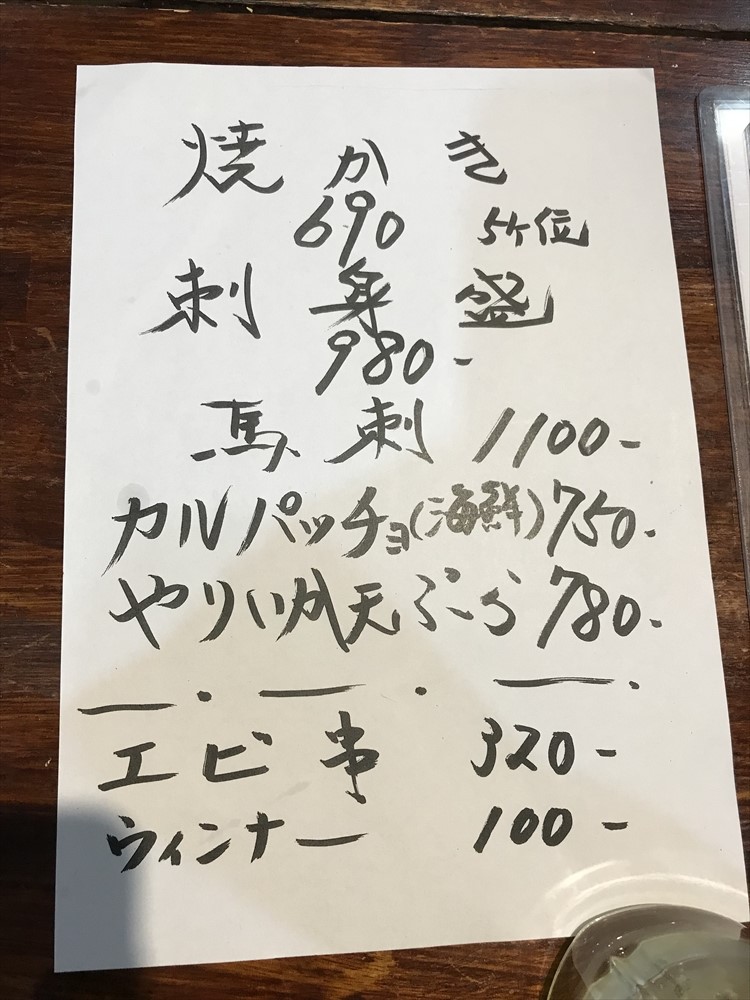 焼かき
690 5ケ位
刺身盛
980-
馬刺 1100-
カルパッチョ(海鮮)750-
やりいか天ぷら 780-
エビ串 320-
ウィンナー 100-